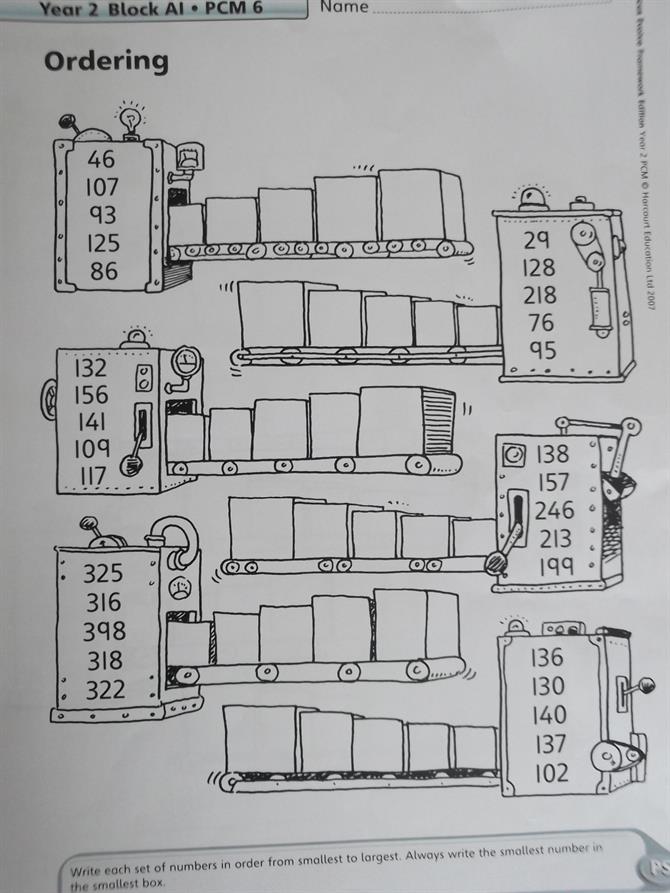 Year 2 Block A1 • PCM 6
Name
Ordering
46
107
93
125
86
29
128
218
76
95
132
156
141
109
117
138
157
246
213
199
325
316
398
318
322
136
130
140
137
102
Write each set of numbers in order from smallest to largest. Always write the smallest number in
the smallest box.
PS
Evolve Framework Edition Year 2 PCM © Harcourt Education Ltd 2007